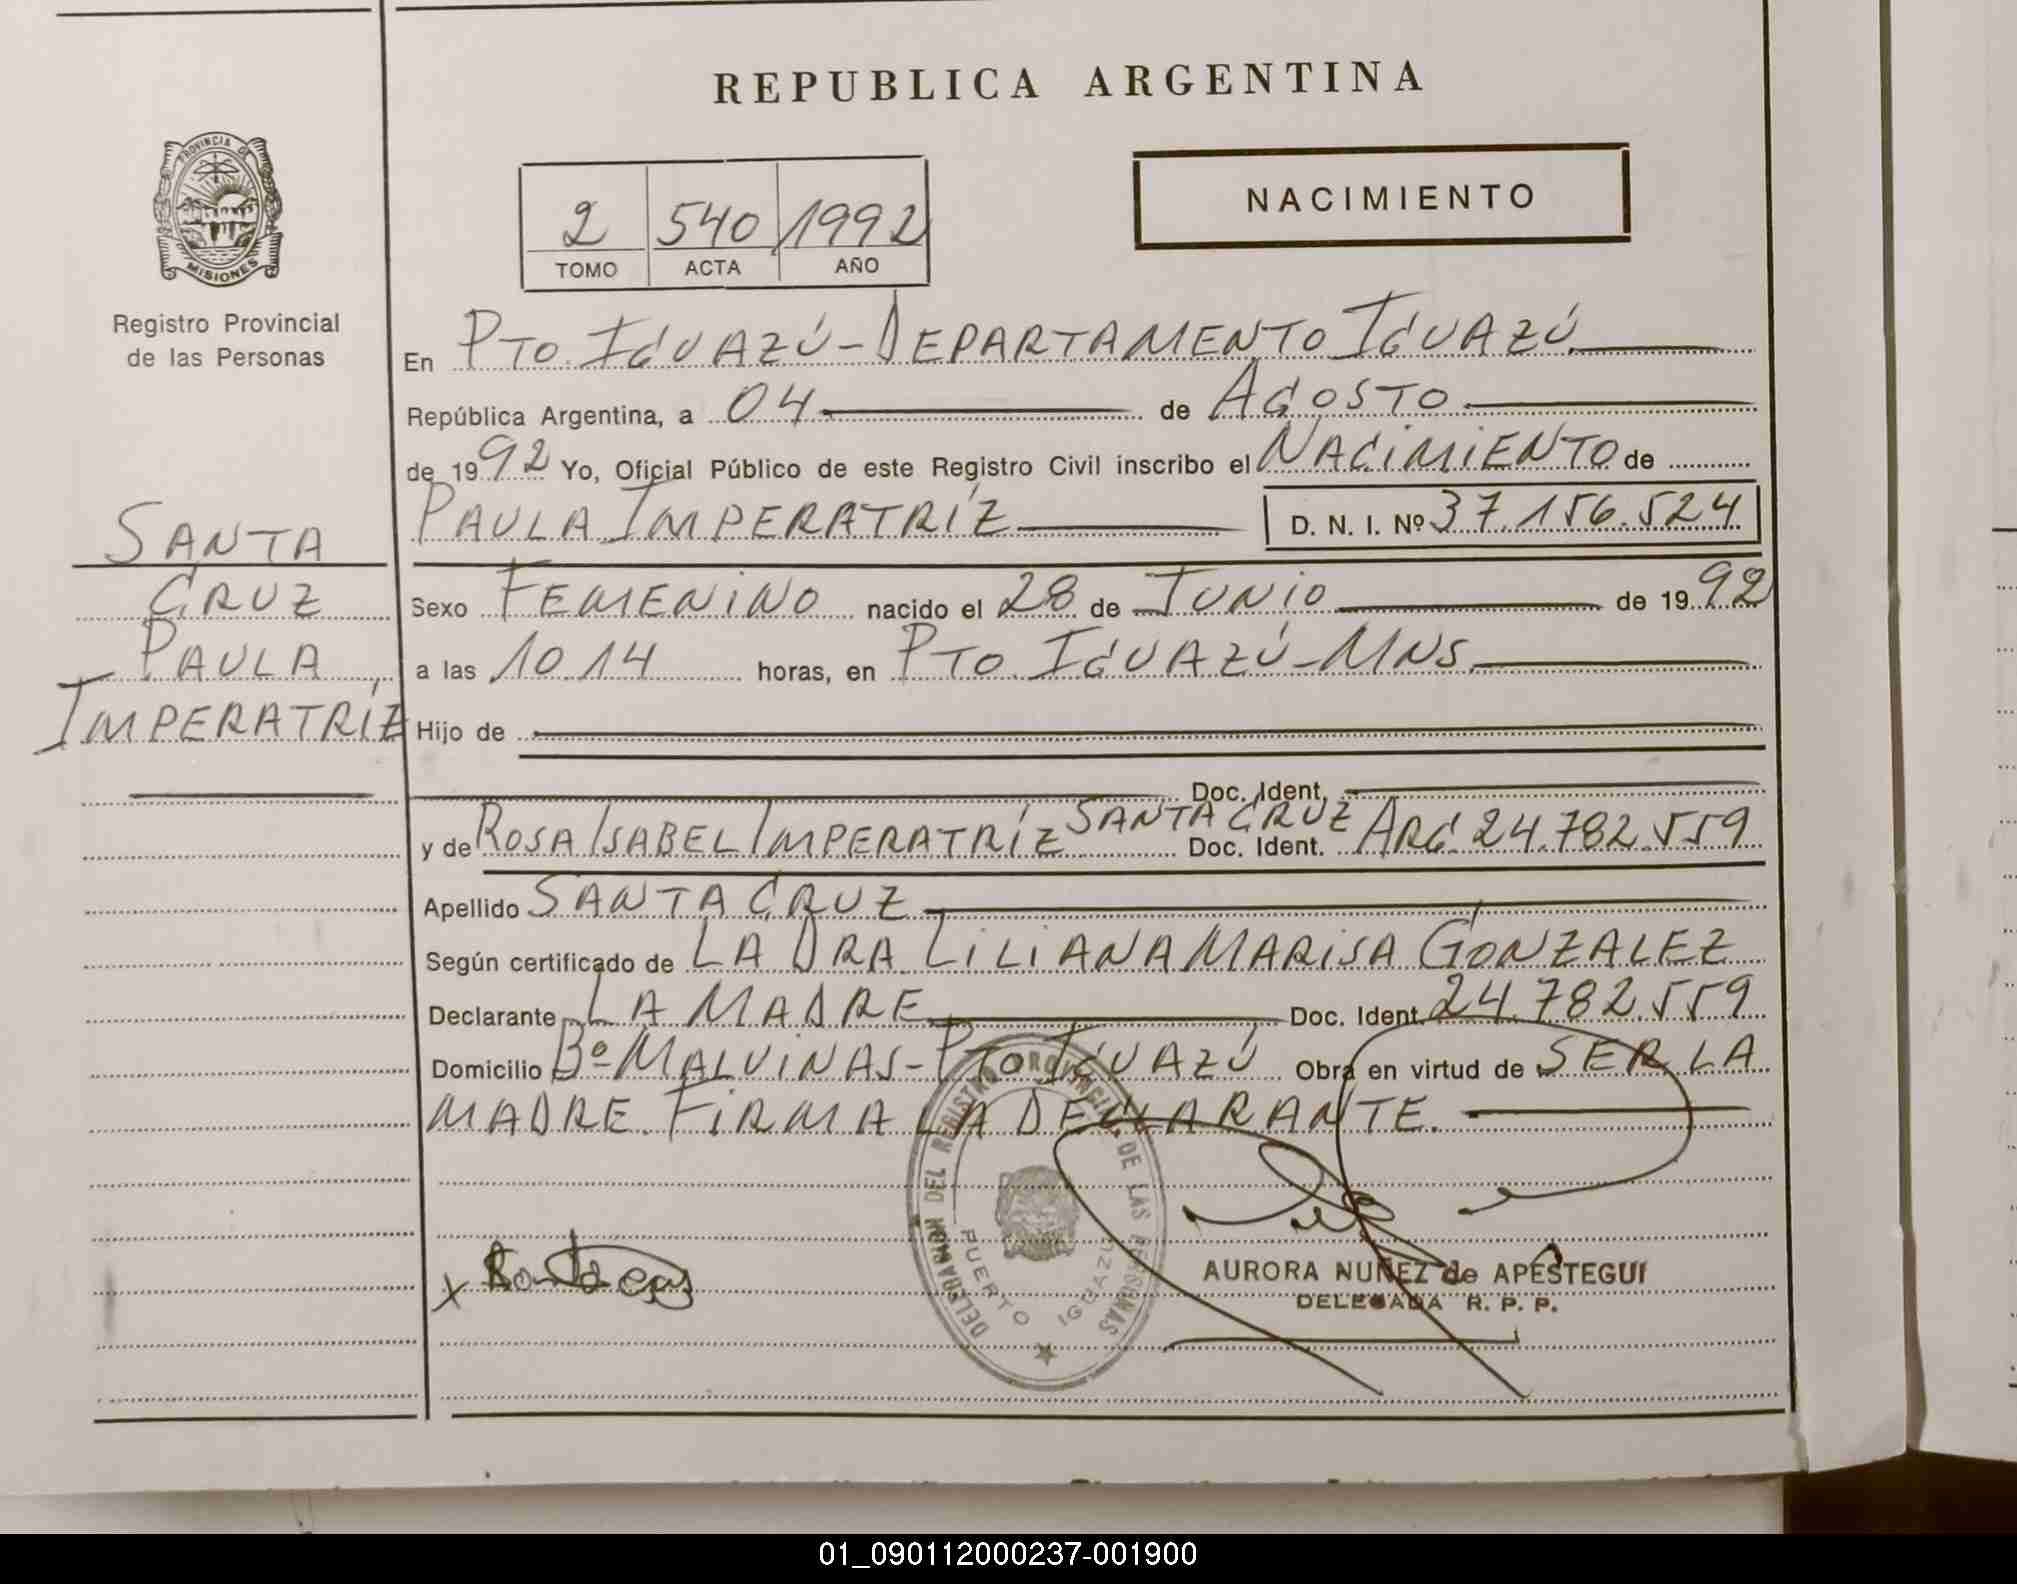 REPUBLICA ARGENTINA
PROVINCIA DE
MISIONES
Registro Provincial
de las Personas
2 540 1992
TOMO ACTA AÑO
NACIMIENTO
SANTA
CRUZ
PAULA
IMPERATRÍZ
En PTO. IGUAZÚ - DEPARTAMENTO IGUAZÚ
República Argentina, a 04 de AGOSTO
de 1992 Yo, Oficial Público de este Registro Civil inscribo el NACIMIENTO de
PAULA IMPERATRÍZ D. N. I. Nº 37.156.524
Sexo FEMENINO nacido el 28 de JUNIO de 1992
a las 10.14 horas, en PTO. IGUAZÚ - MNS.
Hijo de
Doc. Ident.
y de ROSA ISABEL IMPERATRÍZ SANTA CRUZ Doc. Ident. ARG. 24.782.559
Apellido SANTA CRUZ
Según certificado de LA DRA. LILIANA MARISA GONZALEZ
Declarante LA MADRE Doc. Ident. 24.782.559
Domicilio Bº MALVINAS - PTO IGUAZÚ Obra en virtud de SER LA
MADRE. FIRMA LA DECLARANTE.
DELEGACION DEL REGISTRO PROVINCIAL DE LAS PERSONAS
PUERTO IGUAZU
X
AURORA NUÑEZ de APESTEGUI
DELEGADA R. P. P.
01_090112000237-001900